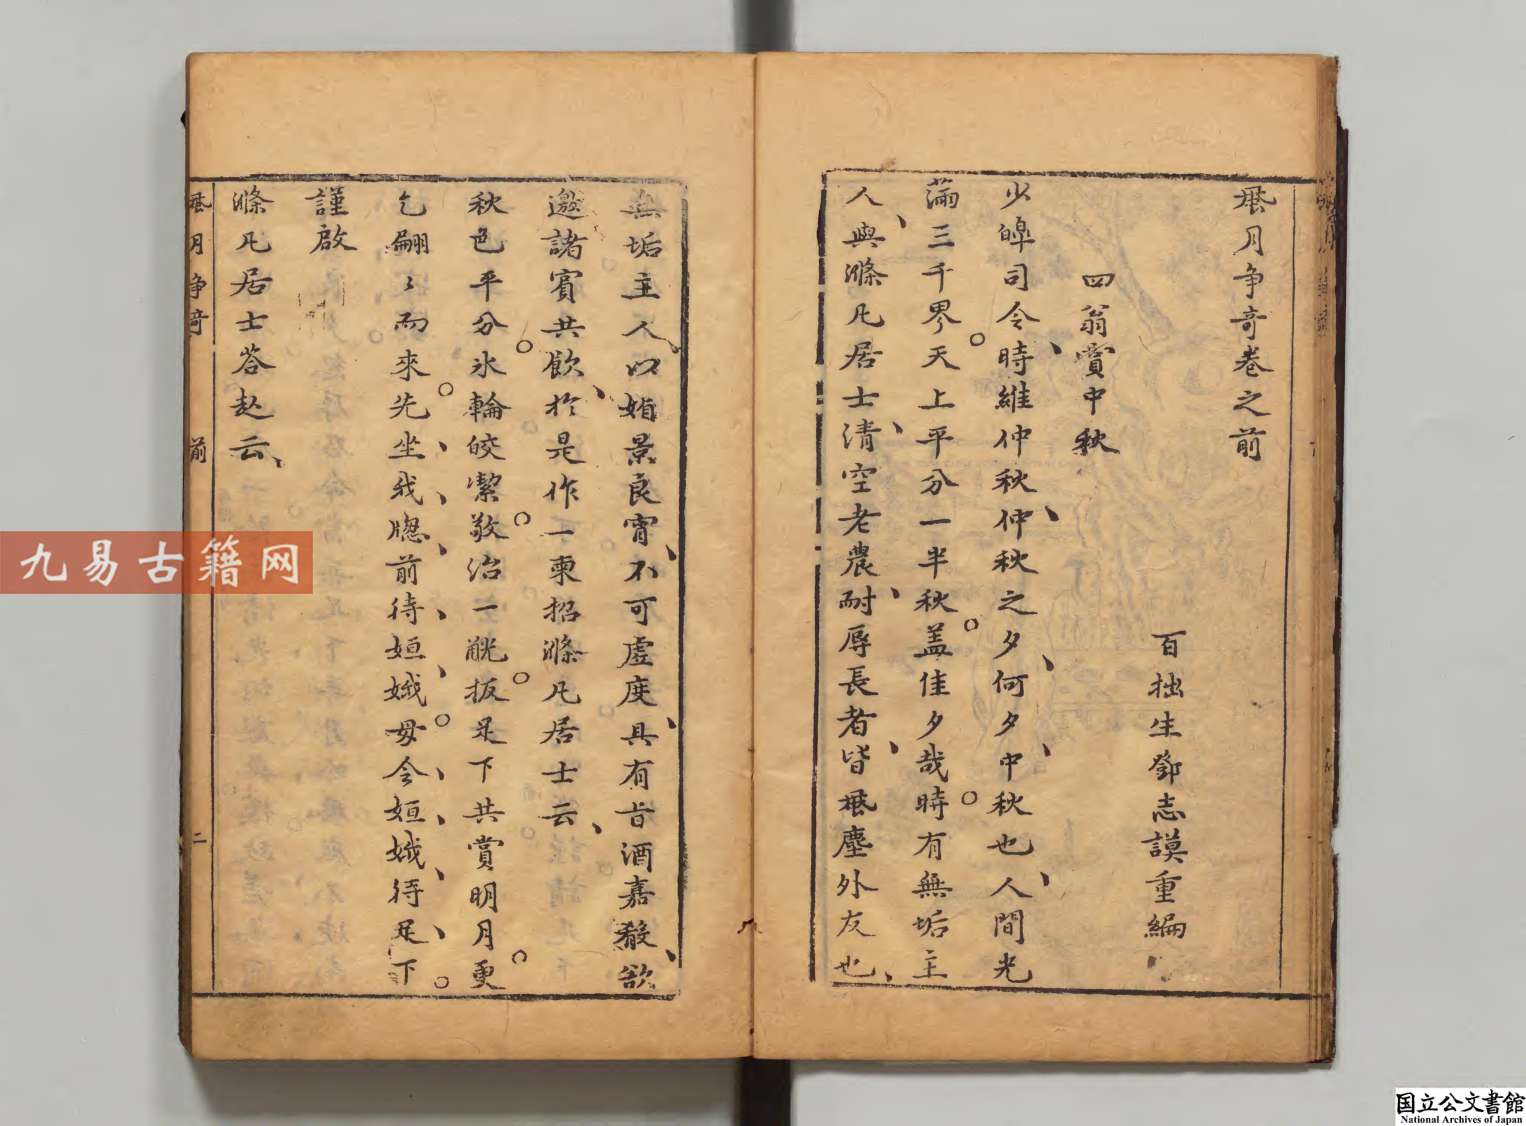 風月争竒卷之前
百拙生鄧志謨重編
四翁賞中秋
少皞司令時維仲秋仲秋之夕何夕中秋也人間光
滿三千界天上平分一半秋盖佳夕哉時有無垢主
人與滌凡居士清空老農耐辱長者皆風塵外友也
無垢主人以媚景良宵不可虚度具有旨酒嘉殽欲
邀諸賓共飲於是作一柬招滌凡居士云
秋色平分氷輪皎潔敬治一觥扳足下共賞明月更
乞翩〻而來先坐我牕前待姮娥毋令姮娥待足下
謹啟
滌凡居士荅赵云
風月争竒 前 二
九易古籍网
国立公文書館
National Archives of Japan